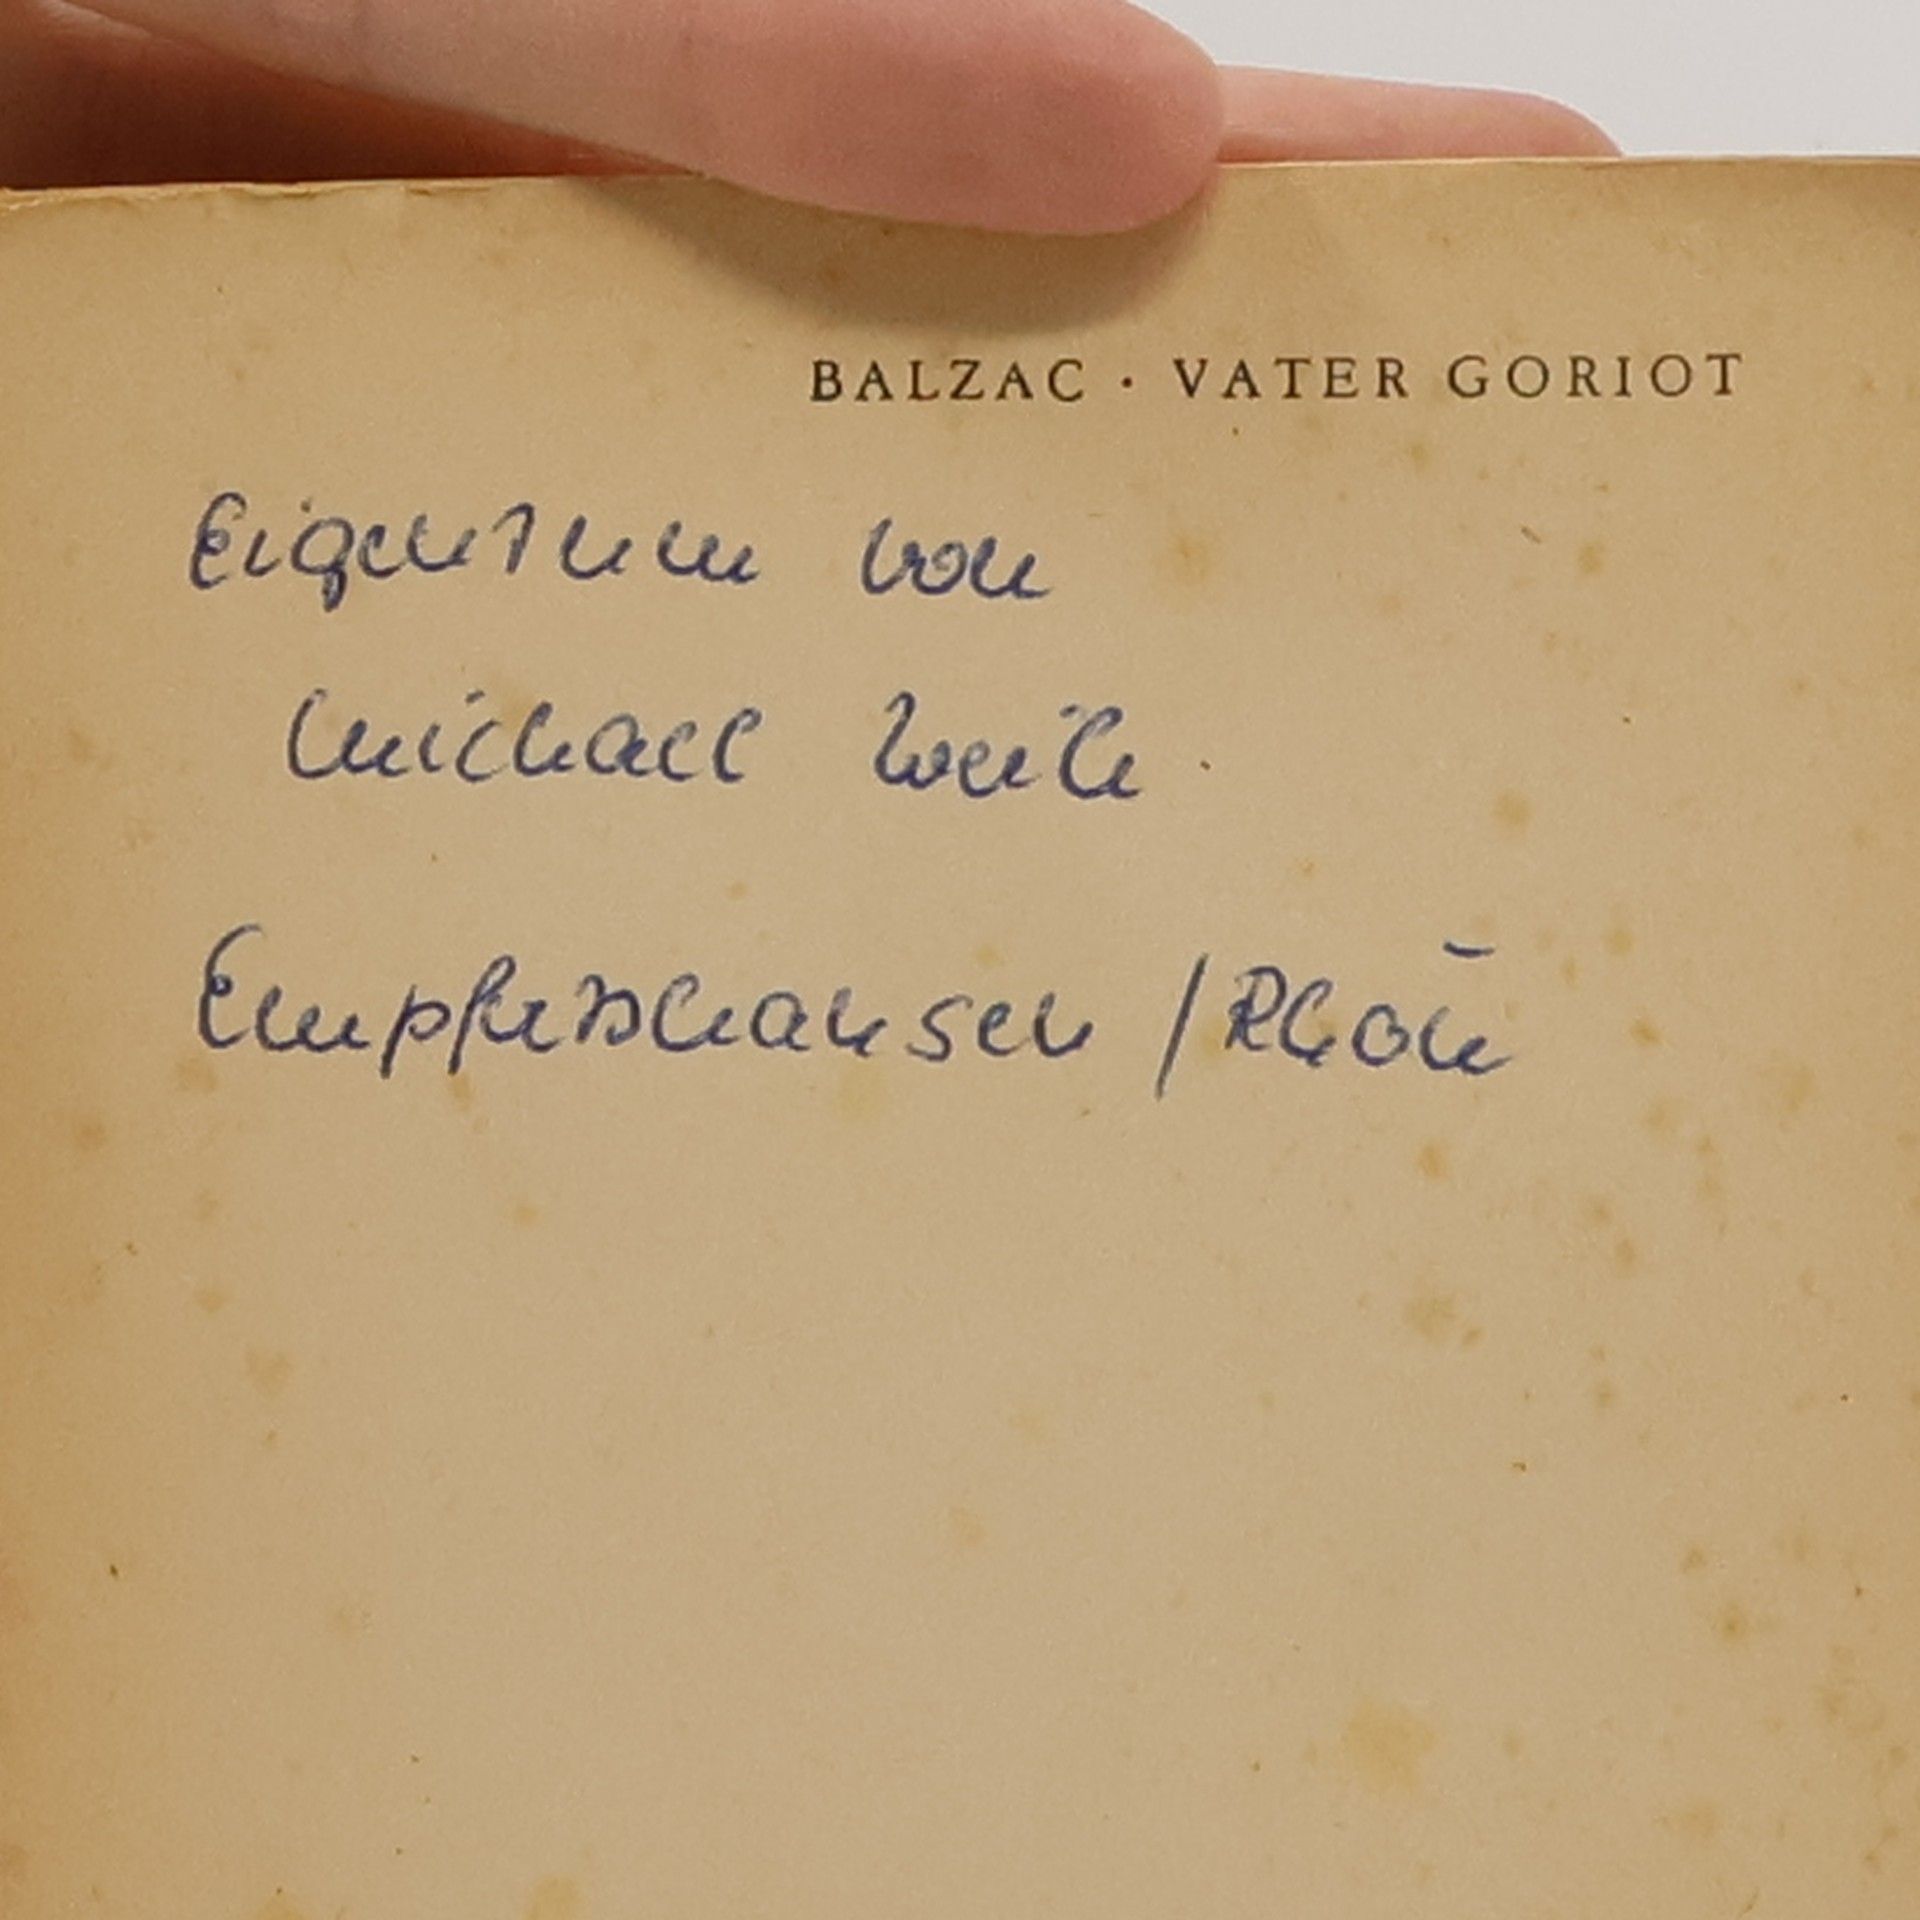 BALZAC · VATER GORIOT
Eigentum von
Michael
Empfertshausen / Rhön